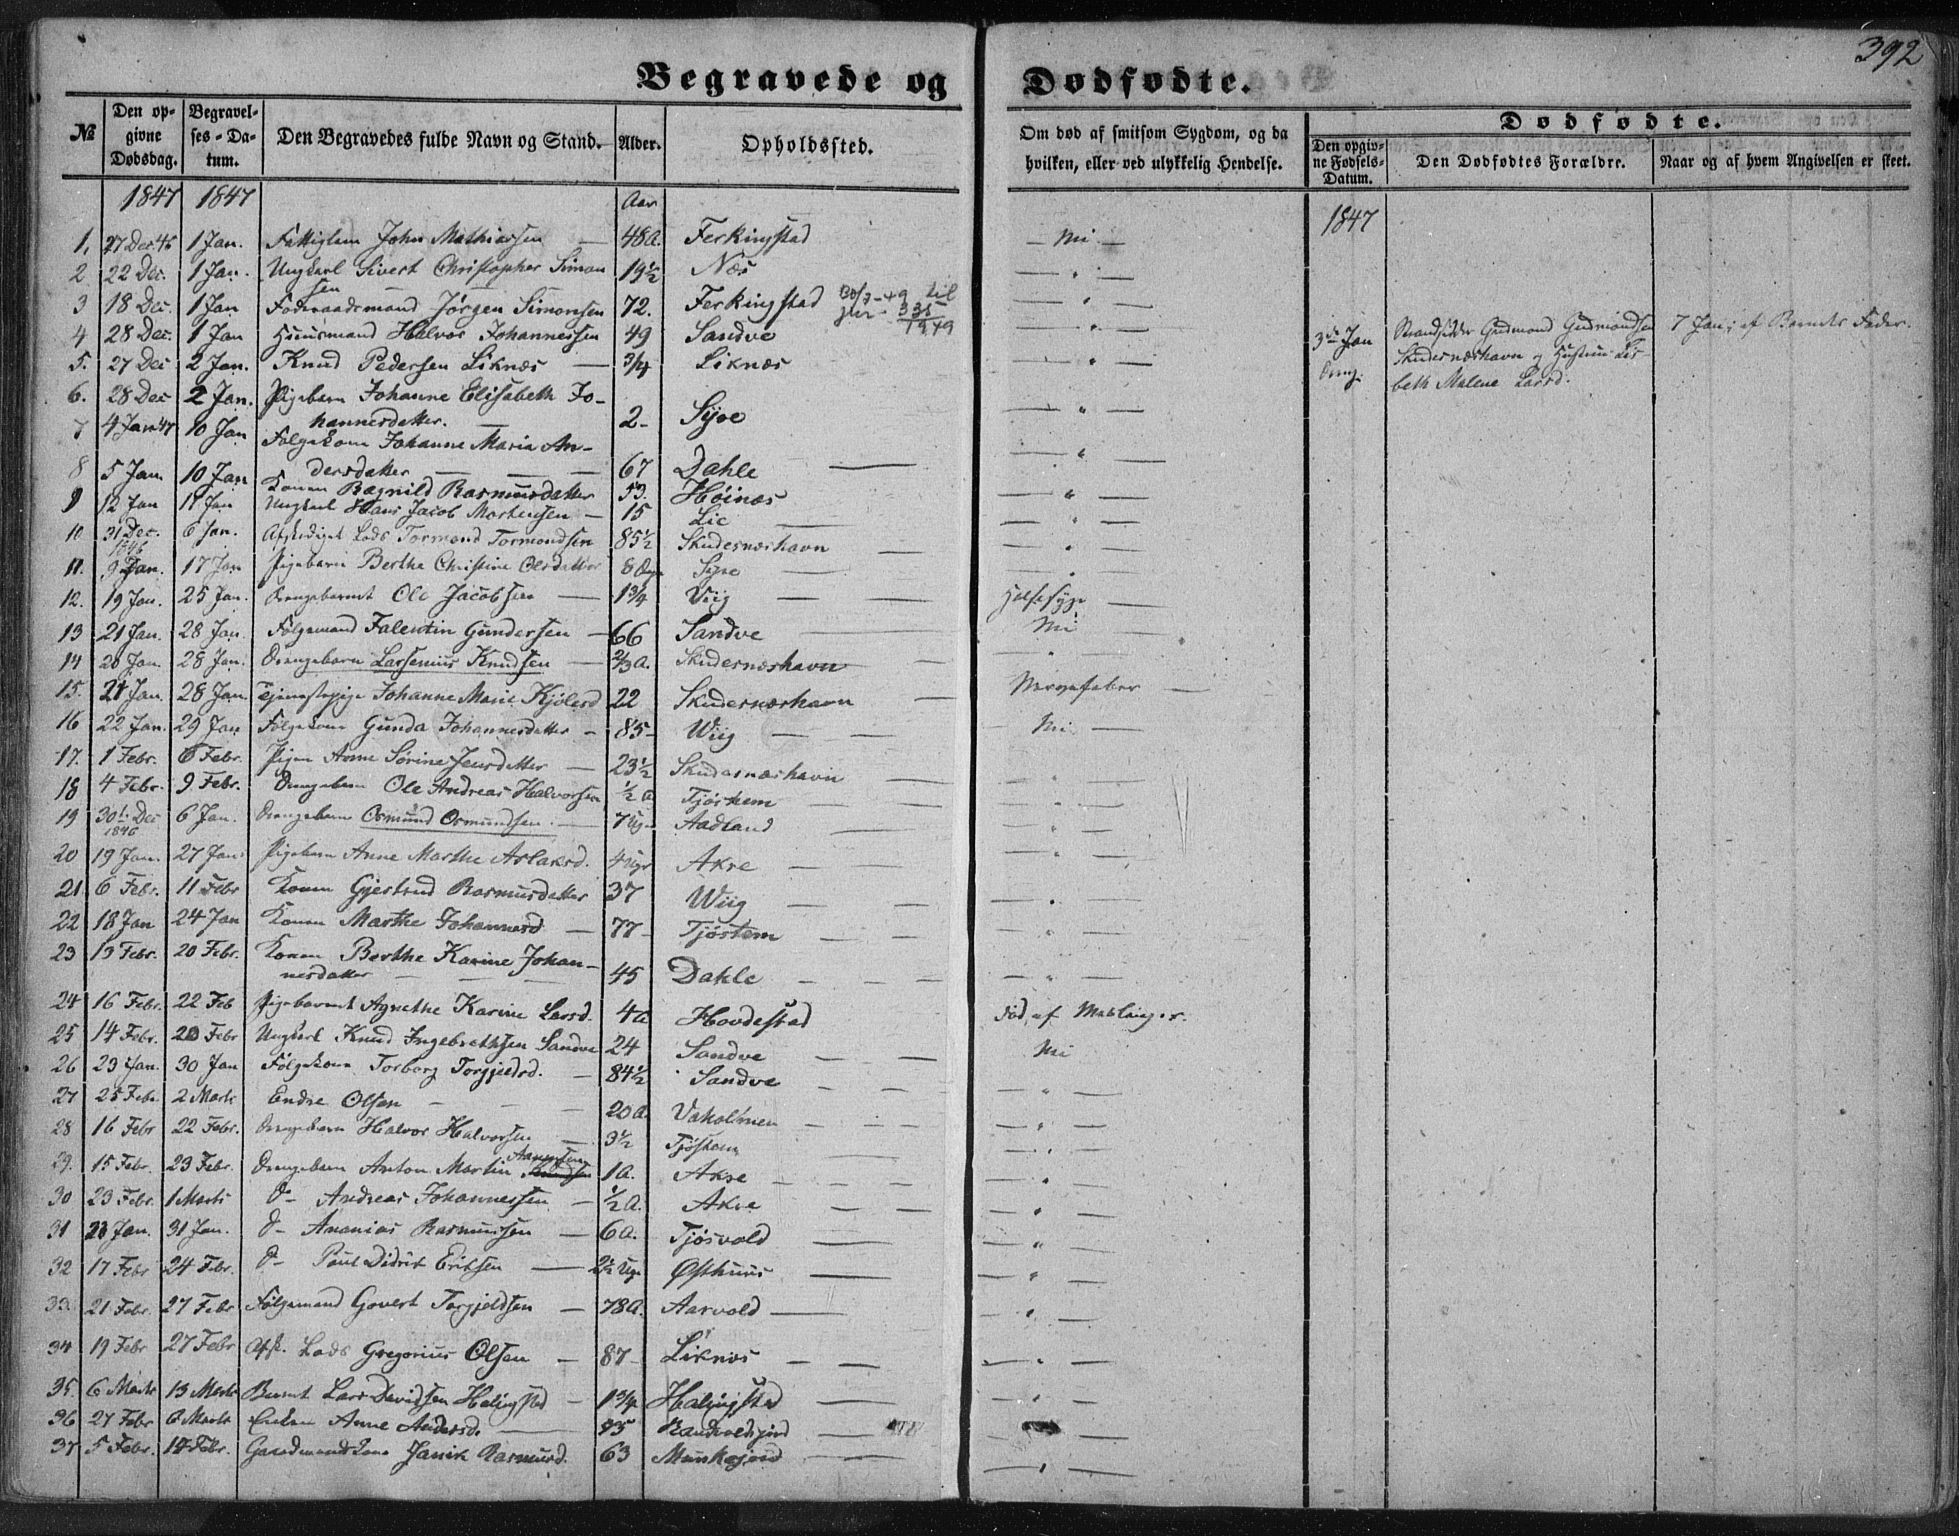 392
Begravede og Dødfødte.
№ Den opgivne Dødsdag. Begravelses-Datum. Den Begravedes fulde Navn og Stand. Alder. Opholdssted. Om død af smitsom Sygdom, og da hvilken, eller ved ulykkelig Hendelse. Dødfødte. Den opgivne Fødsels-Datum. Den Dødfødtes Forældre. Naar og af hvem Angivelsen er skeet.
1847 1847 Aar 1847
1. 27 Dec. 46 1 Jan. Fattiglem John Mathiassen — 48 a. Ferkingstad — Nei —
2 22 Dec. 1 Jan. Ungkarl Sivert Christopher Simonsen 19½ Næs — " —
3 18 Dec. 1 Jan Føderaadsmand Jørgen Simonsen 72. Ferkingstad — " —
4 28 Dec. 1 Jan Huusmand Halvor Johannessen 49 Sandve — " —
5. 27 Dec 2 Jan. Knud Pedersen Liknæs — ¾ Liknæs — " —
6. 28 Dec 2 Jan. Pigebarn Johanne Elisabeth Johannesdatter. 2 - Syre — " —
7 4 Jan 47 10 Jan Følgekone Johanne Maria Andersdatter — 67 Dahle — " —
8 5 Jan. 10 Jan Konen Ragnild Rasmusdatter 53. Høinæs — " —
9 12 Jan 17 Jan Ungkarl Hans Jacob Mortensen — 15 Lie — " —
10 31 Dec. 1846 6 Jan. Afskediget Lods Tormond Tormondsen 85½ Skudesnæshavn — " —
11. 9 Jan. 17 Jan Pigebarn Berthe Christine Olesdatter 8 Dage Syre — " —
12. 19 Jan. 25 Jan. Drengebarnet Ole Jacobsen — 1¾ Viig — Halssyge —
13 21 Jan. 28 Jan. Følgemand Falentin Gundersen — 66 Sandve Nei —
14 20 Jan. 28 Jan. Drengebarn Larsenius Knudsen — ⅔ a. Skudesnæshavn — " —
15. 21 Jan. 28 Jan. Tjenestepige Johanne Marie Kjølesd 22 Skudesnæshavn Nervefeber —
16 22 Jan. 29 Jan Følgekone Gunda Johannesdatter — 85 - Wiig — Nei —
17. 1 Febr. 6 Febr. Pigen Anne Sørine Jensdatter — 23½ Skudesnæshavn — " —
18 4 Febr. 9 Febr. Drengebarn Ole Andreas Halvorsen ½ a Tjøstem — " —
19 30te Dec 1846 6 Jan. Drengebarn Osmund Osmundsen. — 7 Ug. Aadland — " —
20 19 Jan. 27 Jan. Pigebarn Anne Marthe Aslaksd. 4 Uger Akre — " —
21 6 Febr. 11 Febr Konen Gjertrud Rasmusdatter 37 Wiig — " —
22 18 Jan 24 Jan Konen Marthe Johannesd. — 77 - Tjøstem — " —
23 13 Febr. 20 Febr. Konen Berthe Karine Johannesdatter — 45 Dahle — " —
24 16 Febr. 22 Feb Pigebarnet Agnethe Karine Larsd. 4 a Hovdestad Død af Mæslinger.
25 14 Febr. 20 Febr Ungkarl Knud Ingebrethsen Sandve 24 Sandve — Nei
26 23 Jan. 30 Jan Følgekone Torborg Torgjeldsd. — 84½ Sandve — " —
27 25 Febr. 2 Marts Endre Olsen — 20 a. Vakolmen — " —
28 16 Febr 22 Febr. Drengebarn Halvor Halvorsen — 3½ Tjøstem — " —
29. 15 Febr. 23 Febr. Drengebarn Anton Martin Aanensen 1 a. Akre — " —
30 23 Febr. 1 Marts D- Andreas Johannessen — ½ a. Akre — " —
31 23 Jan. 31 Jan. D- Ananias Rasmussen — 6 a. Tjøsvold — " —
32 17 Febr 24 Febr. D- Poul Didrik Eriksen — 2½ Uge Østhuus — " —
33. 21 Febr. 27 Febr Følgemand Govert Torgjeldsen — 78 a. Aarvold — " —
34 19 Febr 27 Febr Afsk. Lods Gregorius Olsen — 87 - Liknæs — " —
35. 6 Marts 13 Marts Barnet Lars Davidsen Halingstad — 1¾ Halingstad — " —
36 27 Febr 6 Marts Enken Anne Andersd. — 75 Sandvedsjord — " —
37 5 Febr. 14 Febr. Gaardmandskone Janik Rasmusd. 63 Munkejord — " —
30/3-49 til
335
1949
3die Jan Dreng. Strandsidder Gudmund Gudmundsen 7 Jan; af Barnets Fader.
Skudesnæshavn og Hustru Lis-
beth Malene Larsd.